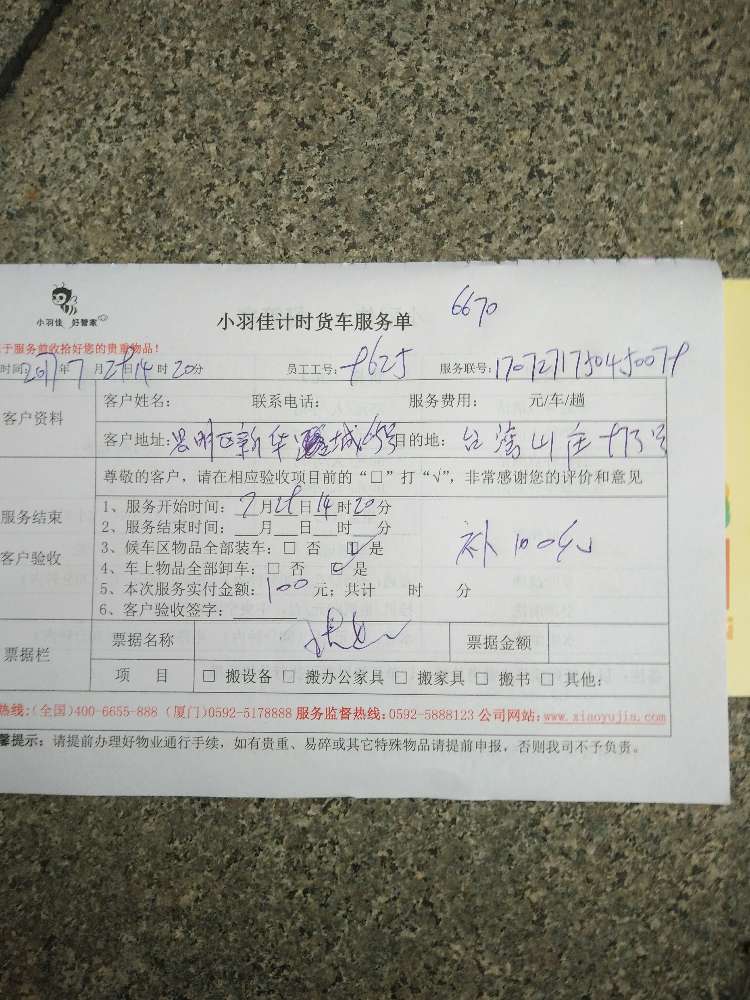 6670
小羽佳 好管家
小羽佳计时货车服务单
于服务前收拾好您的贵重物品!
时间:2017年7月28日14时20分 员工工号: 9625 服务联号:
客户资料
客户姓名: 联系电话: 服务费用: 元/车/趟
客户地址:思明区新华 城 目的地: 山庄 号
尊敬的客户,请在相应验收项目前的“□”打“√”,非常感谢您的评价和意见
服务结束
客户验收
1、服务开始时间:7月28日14时20分
2、服务结束时间:___月___日___时___分
3、候车区物品全部装车:□ 否 ☑ 是
4、车上物品全部卸车:□ 否 ☑ 是
5、本次服务实付金额:100元;共计 时 分
6、客户验收签字:
补100元
票据栏
票据名称 票据金额
项 目 □ 搬设备 □ 搬办公家具 □ 搬家具 □ 搬书 □ 其他:
热线:(全国)400-6655-888 (厦门)0592-5178888 服务监督热线:0592-5888123 公司网站:www.xiaoyujia.com
馨提示:请提前办理好物业通行手续,如有贵重、易碎或其它特殊物品请提前申报,否则我司不予负责。